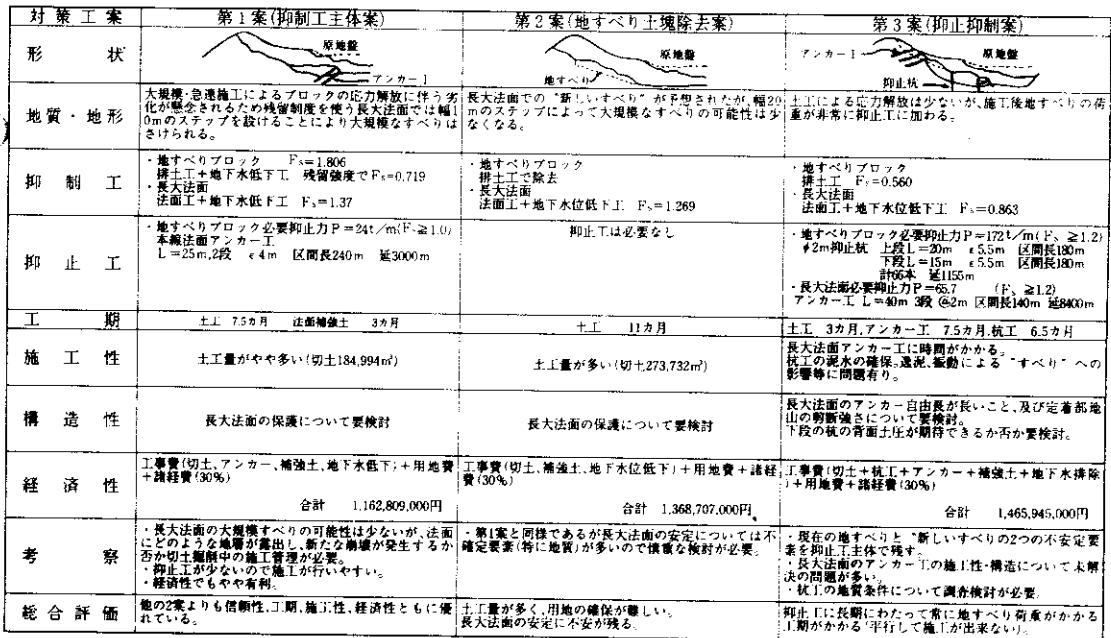 対策工案
第1案(抑制工主体案)
第2案(地すべり土塊除去案)
第3案(抑止抑制案)
形状
原地盤
アンカー工
原地盤
地すべり
アンカー工
原地盤
抑止杭
地質・地形
大規模・急速施工によるブロックの応力解放に伴う劣
化が懸念されるため残留制度を使う長大法面では幅1
0mのステップを設けることにより大規模なすべりは
さけられる。
長大法面での“新しいすべり”が予想されたが、幅20
mのステップによって大規模なすべりの可能性は少
なくなる。
土工による応力解放は少ないが、施工後地すべりの荷
重が非常に抑止工に加わる。
抑制工
・地すべりブロック Fs=1.806
排土工+地下水低下工 残留強度でFs=0.719
・長大法面
法面工+地下水低下工 Fs=1.37
・地すべりブロック
排土工で除去
・長大法面
法面工+地下水位低下工 Fs=1.269
・地すべりブロック
排土工 Fs=0.560
・長大法面
法面工+地下水位低下工 Fs=0.863
抑止工
・地すべりブロック必要抑止力P=24t/m(Fs≧1.0)
本線法面アンカー工
L=25m,2段 4m 区間長240m 延3000m
抑止工は必要なし
・地すべりブロック必要抑止力P=172t/m(Fs≧1.2)
φ2m抑止杭 上段L=20m 3.5m 区間長180m
下段L=15m 5.5m 区間長180m
計66本 延1155m
・長大法面必要抑止力P=65.7 (Fs≧1.2)
アンカー工 L=40m 3段 @2m 区間長140m 延8400m
工期
土工 7.5カ月 法面補強土 3カ月
土工 11カ月
土工 3カ月,アンカー工 7.5カ月,杭工 6.5カ月
施工性
土工量がやや多い(切土184,994㎥)
土工量が多い(切土273,732㎥)
長大法面アンカー工に時間がかかる。
杭工の泥水の確保、逸泥、振動による“すべり”への
影響等に問題有り。
構造性
長大法面の保護について要検討
長大法面の保護について要検討
長大法面のアンカー自由長が長いこと、及び定着部地
山の剪断強さについて要検討。
下段の杭の背面土圧が期待できるか否か要検討。
経済性
工事費(切土、アンカー、補強土、地下水低下)+用地費
+諸経費(30%)
合計 1,162,809,000円
工事費(切土、補強土、地下水位低下)+用地費+諸経
費(30%)
合計 1,368,707,000円
工事費(切土+杭工+アンカー+補強土+地下水排除
)+用地費+諸経費(30%)
合計 1,465,945,000円
考察
・長大法面の大規模すべりの可能性は少ないが、法面
にどのような地層が露出し、新たな崩壊が発生するか
否か切土掘削中の施工管理が必要。
・抑止工が少ないので施工が行いやすい。
・経済性でもやや有利。
・第1案と同様であるが長大法面の安定については不
確定要素(特に地質)が多いので慎重な検討が必要。
・現在の地すべりと“新しいすべりの2つの不安定要
素を抑止工主体で残す。
・長大法面のアンカー工の施工性・構造について未解
決の問題が多い。
・杭工の地質条件について調査検討が必要
総合評価
他の2案よりも信頼性、工期、施工性、経済性ともに優
れている。
土工量が多く、用地の確保が難しい。
長大法面の安定に不安が残る。
抑止工に長期にわたって常に地すべり荷重がかかる
工期がかかる(平行して施工が出来ない)。